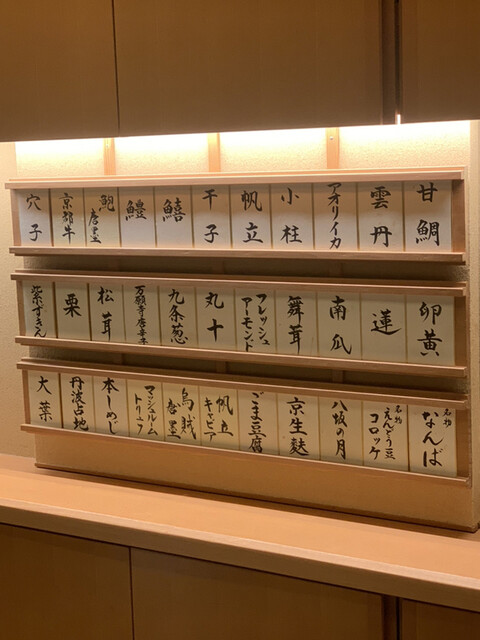 甘鯛
雲丹
アオリイカ
小柱
帆立
干子
鱚
鱧
鮑
唐墨
京都牛
穴子
卵黄
蓮
南瓜
舞茸
フレッシュ
アーモンド
丸十
九条葱
万願寺唐辛子
松茸
栗
紫ずきん
名物
なんば
名物
えんどう豆
コロッケ
八坂の月
京生麩
ごま豆腐
帆立
キャビア
烏賊
唐墨
マッシュルーム
トリュフ
本しめじ
丹波占地
大葉